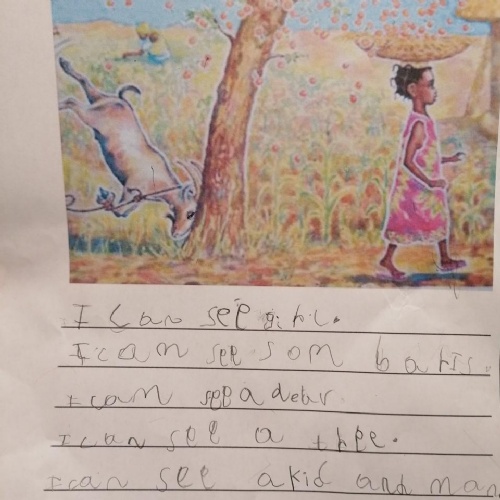 I can see girl.
I can see som baris.
I can see a detr
I can see a three.
I can see a kid and man